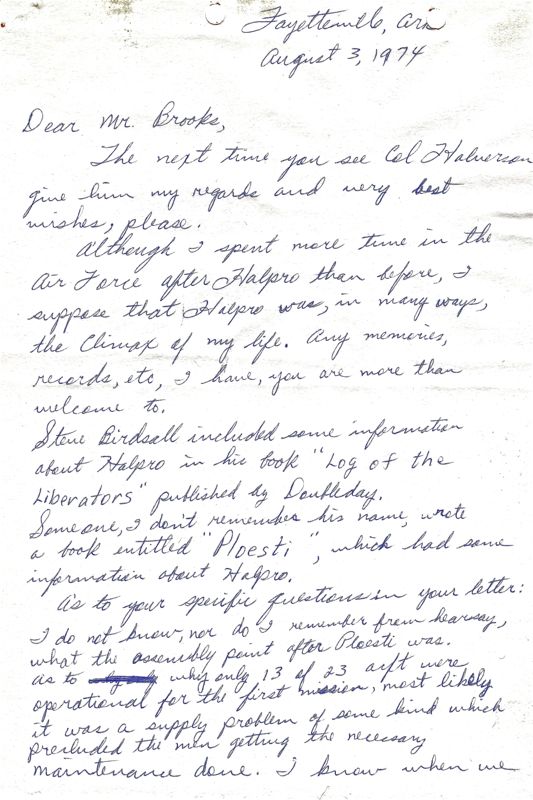 Fayetteville, Ark
August 3, 1974
Dear Mr. Brooks,
The next time you see Col Halverson
give him my regards and very best
wishes, please.
Although I spent more time in the
Air Force after Halpro than before, I
suppose that Halpro was, in many ways,
the Climax of my life. Any memories,
records, etc, I have, you are more than
welcome to.
Steve Birdsall included some information
about Halpro in his book "Log of the
Liberators" published by Doubleday.
Someone, I don't remember his name, wrote
a book entitled "Ploesti", which had some
information about Halpro.
As to your specific questions in your letter:
I do not know, nor do I remember from hearsay,
what the assembly point after Ploesti was.
as to why only 13 of 23 acft were
operational for the first mission, most likely
it was a supply problem of some kind which
precluded the men getting the necessary
maintenance done. I know when we